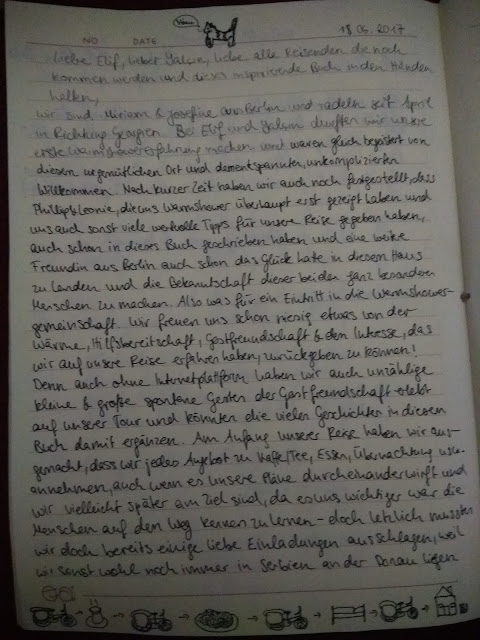 Miau
NO DATE 18.06.2017
Liebe Elif, lieber Yalcın, liebe alle Reisenden die noch
kommen werden und dieses inspirierende Buch in den Händen
halten,
wir sind Miriam & Josefine aus Berlin und radeln seit April
in Richtung Georgien. Bei Elif und Yalcın durften wir unsere
erste Warmshowererfahrung machen und waren gleich begeistert von
diesem urgemütlichen Ort und dem entspannten, unkomplizierten
Willkommen. Nach kurzer Zeit haben wir auch noch festgestellt, dass
Philipp & Leonie, die uns Warmshower überhaupt erst gezeigt haben und
uns auch sonst viele wertvolle Tipps für unsere Reise gegeben haben,
auch schon in dieses Buch geschrieben haben und eine weitere
Freundin aus Berlin auch schon das Glück hatte in diesem Haus
zu landen und die Bekanntschaft dieser beiden ganz besonderen
Menschen zu machen. Also was für ein Eintritt in die Warmshower-
gemeinschaft. Wir freuen uns schon riesig etwas von der
Wärme, Hilfsbereitschaft, Gastfreundschaft & dem Interesse, das
wir auf unserer Reise erfahren haben, zurückgeben zu können!
Denn auch ohne Internetplattform haben wir auch unzählige
kleine & große spontane Gesten der Gastfreundschaft erlebt
auf unserer Tour und könnten die vielen Geschichten in diesem
Buch damit ergänzen. Am Anfang unserer Reise haben wir aus-
gemacht, dass wir jedes Angebot zu Kaffe/Tee, Essen, Übernachtung usw.
annehmen, auch wenn es unsere Pläne durcheinanderwirft und
wir vielleicht später am Ziel sind, da es uns wichtiger war die
Menschen auf dem Weg kennen zu lernen - doch letzlich mussten
wir doch bereits einige liebe Einladungen ausschlagen, weil
wir sonst wohl noch immer in Serbien an der Donau lägen